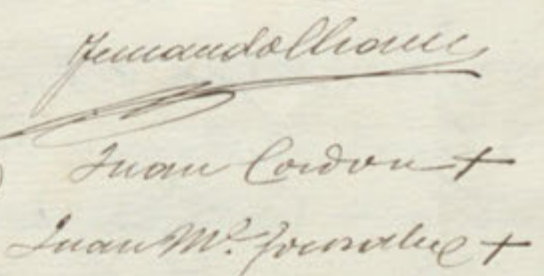 Fernando
Juan Cordon +
Juan Mª. Gonzalez +